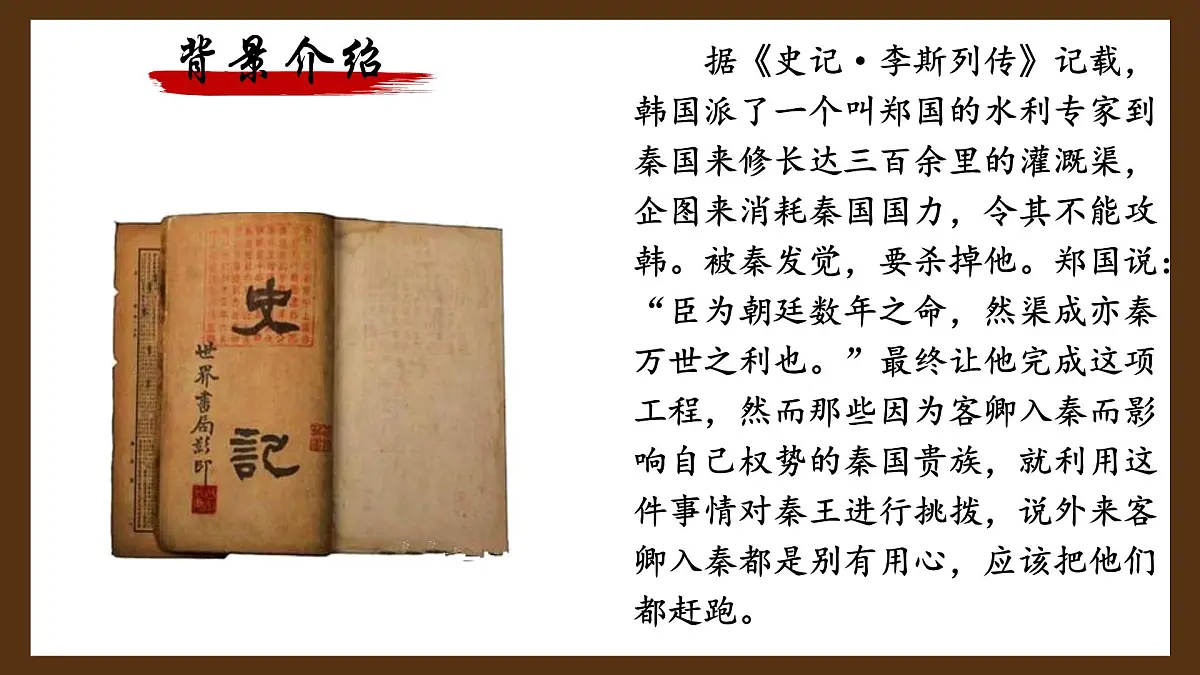 背景介绍
据《史记·李斯列传》记载，
韩国派了一个叫郑国的水利专家到
秦国来修长达三百余里的灌溉渠，
企图来消耗秦国国力，令其不能攻
韩。被秦发觉，要杀掉他。郑国说：
“臣为朝廷数年之命，然渠成亦秦
万世之利也。”最终让他完成这项
工程，然而那些因为客卿入秦而影
响自己权势的秦国贵族，就利用这
件事情对秦王进行挑拨，说外来客
卿入秦都是别有用心，应该把他们
都赶跑。
史記
世界書局影印